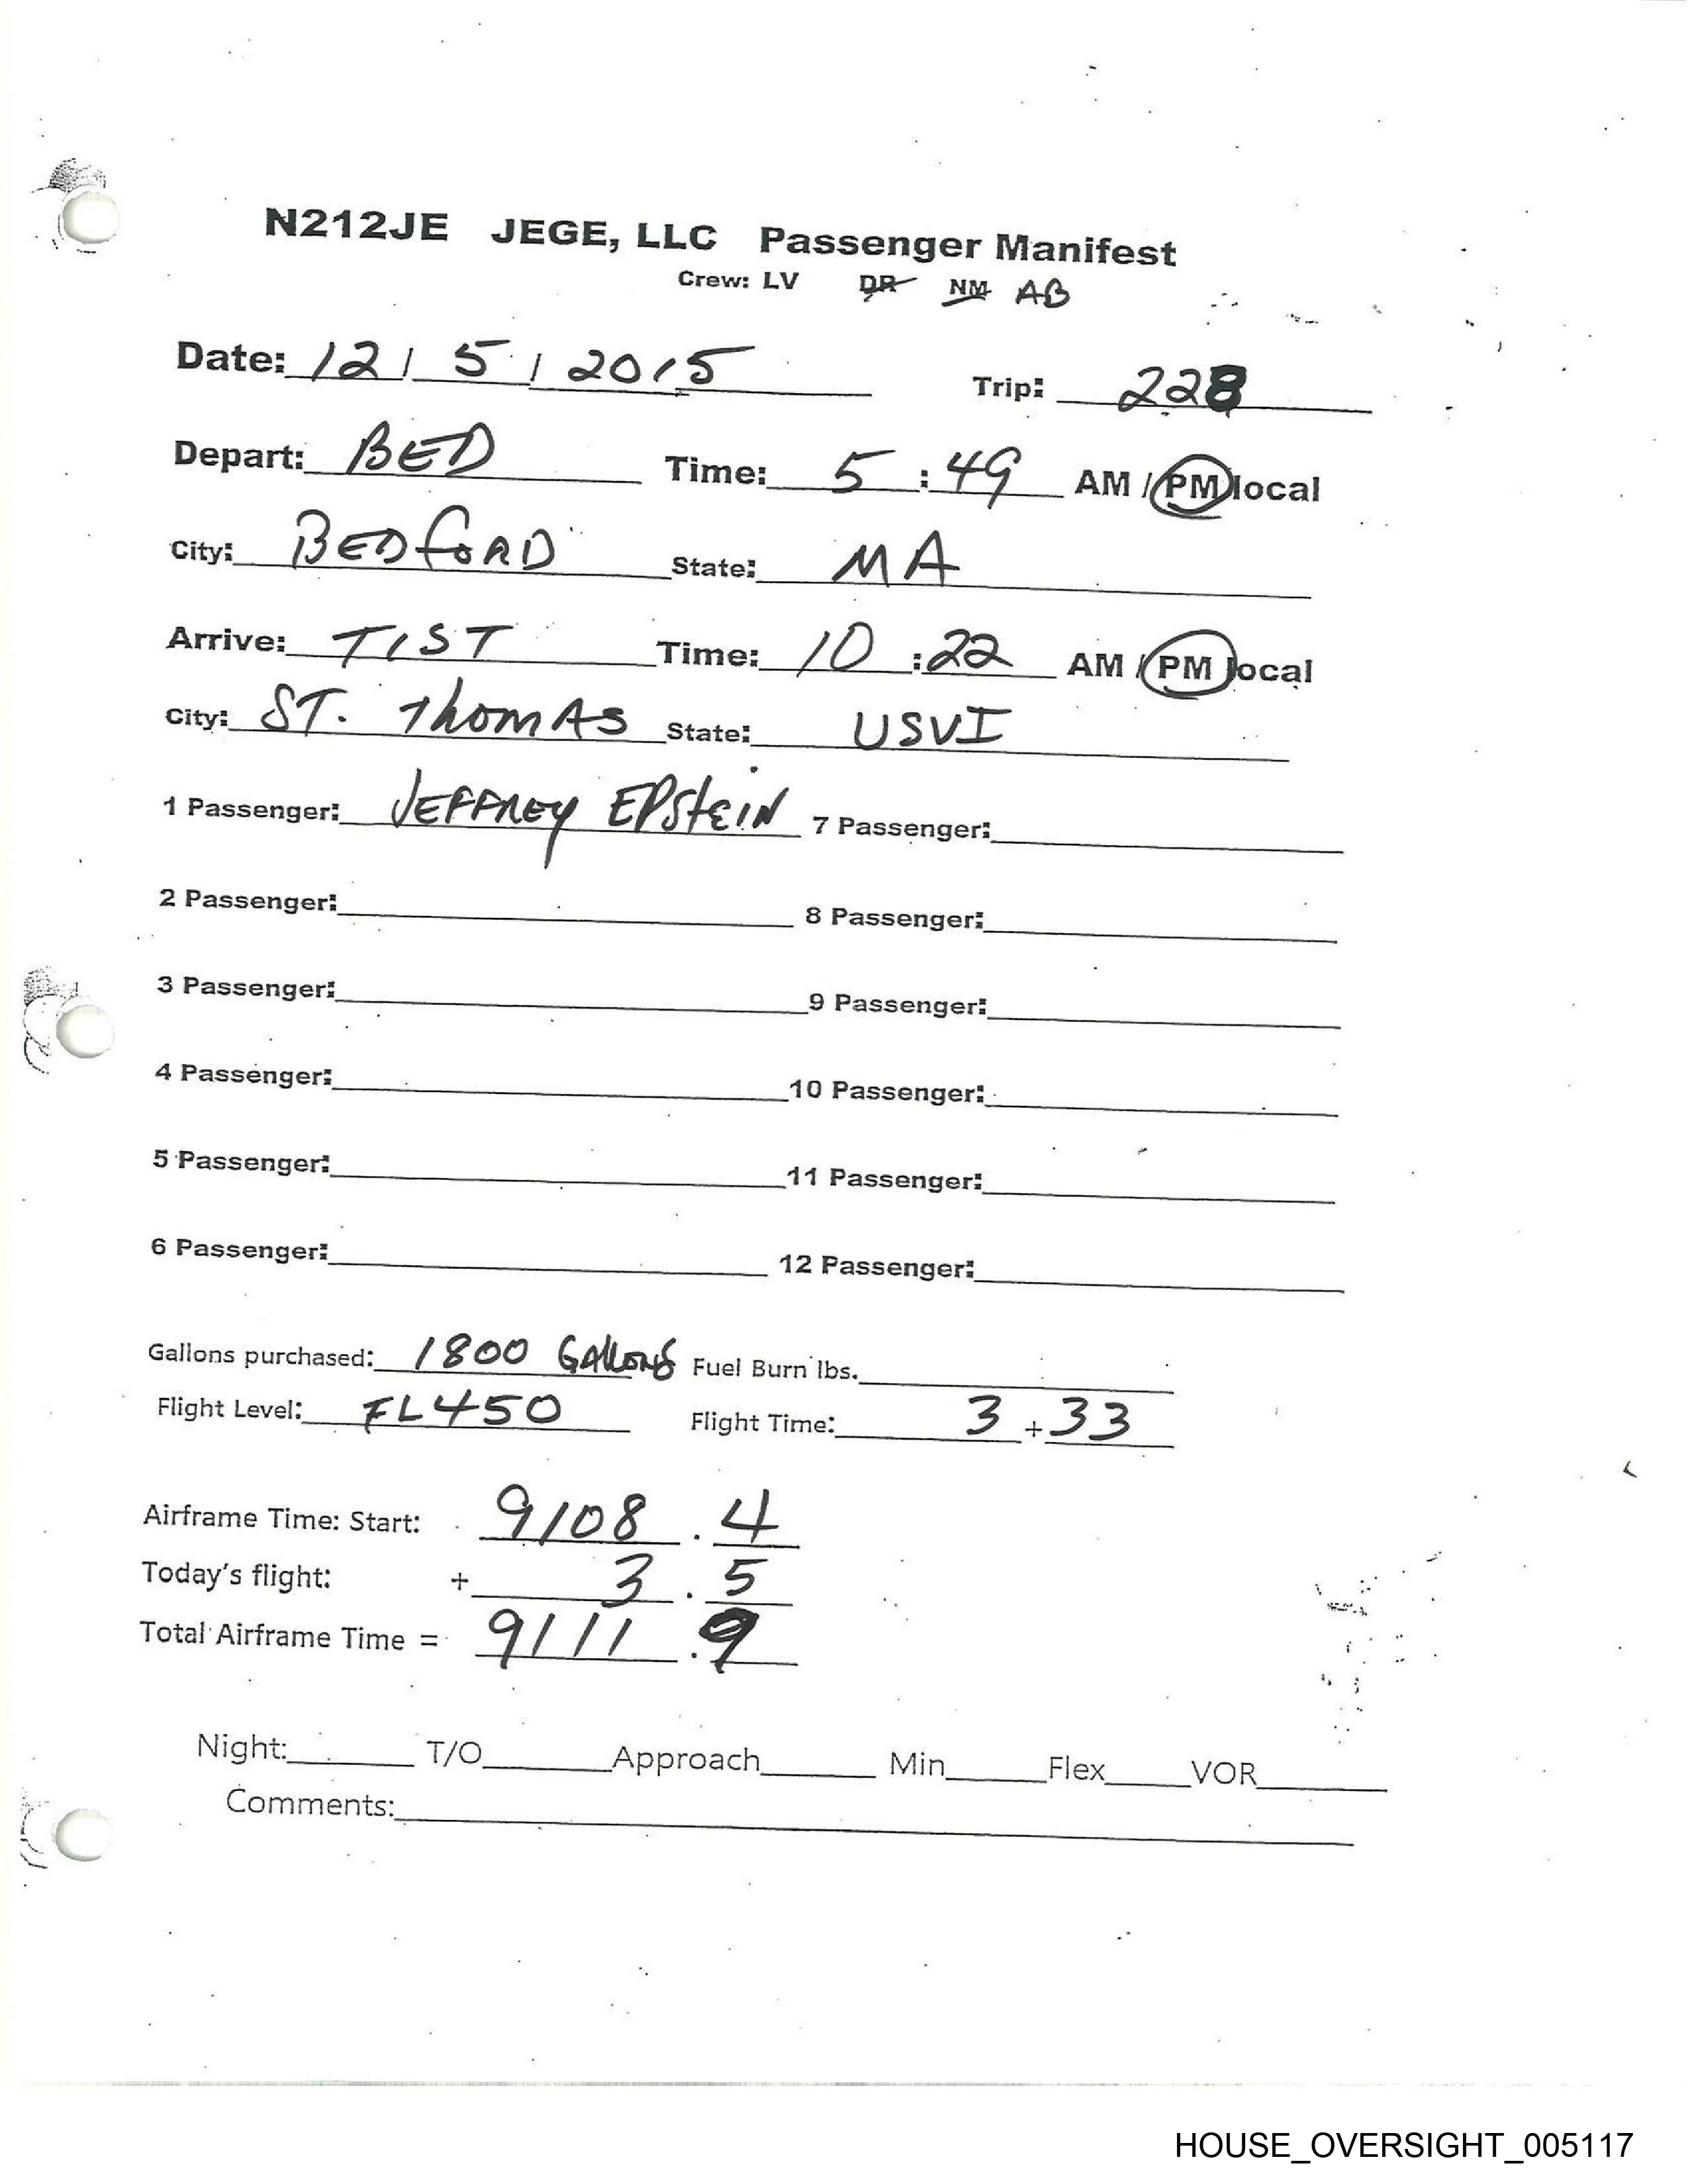 N212JE JEGE, LLC Passenger Manifest
Crew: LV DR NM AB
Date: 12 / 5 / 2015 Trip: 228
Depart: BED Time: 5 : 49 AM / PM local
City: BEDFORD State: MA
Arrive: TIST Time: 10 : 22 AM / PM local
City: ST. ThomAS State: USVI
1 Passenger: JEFFREY EPStEIN 7 Passenger:
2 Passenger: 8 Passenger:
3 Passenger: 9 Passenger:
4 Passenger: 10 Passenger:
5 Passenger: 11 Passenger:
6 Passenger: 12 Passenger:
Gallons purchased: 1800 GAllonS Fuel Burn lbs.
Flight Level: FL450 Flight Time: 3 + 33
Airframe Time: Start: 9108 . 4
Today's flight: + 3 . 5
Total Airframe Time = 9111 . 9
Night: T/O Approach Min Flex VOR
Comments:
HOUSE_OVERSIGHT_005117